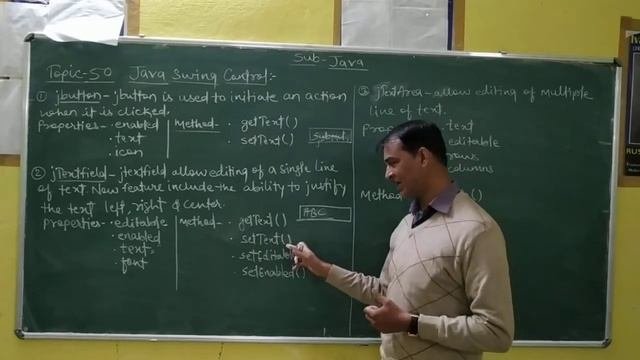 Sub- Java
Topic-50 Java Swing Control:-
① jbutton - jbutton is used to initiate an action
when it is clicked.
Properties - • enabled
• text
• icon
Method - • getText()
• setText()
Submit
② jTextfield - jtextfield allow editing of a single line
of text. New feature include the ability to justify
the text left, right & center.
ABC
Properties - • editable
• enabled
• text
• font
Method - • getText()
• setText()
• setEditable
• setEnabled()
③ jTextArea - allow editing of multiple
line of text.
text
editable
rows
columns
Method